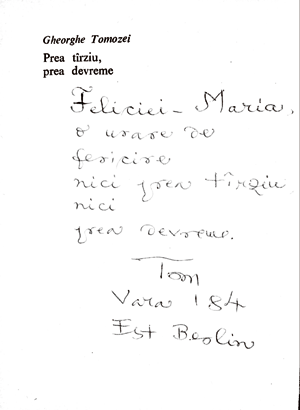 Gheorghe Tomozei
Prea tîrziu,
prea devreme
Feliciei - Maria,
o urare de
fericire
nici prea tîrziu
nici
prea devreme.
Tom
Vara '84
Est Beolin